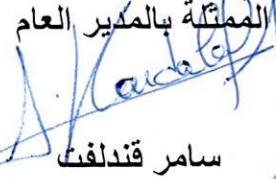 الممثلة بالمدير العام
سامر قندلفت